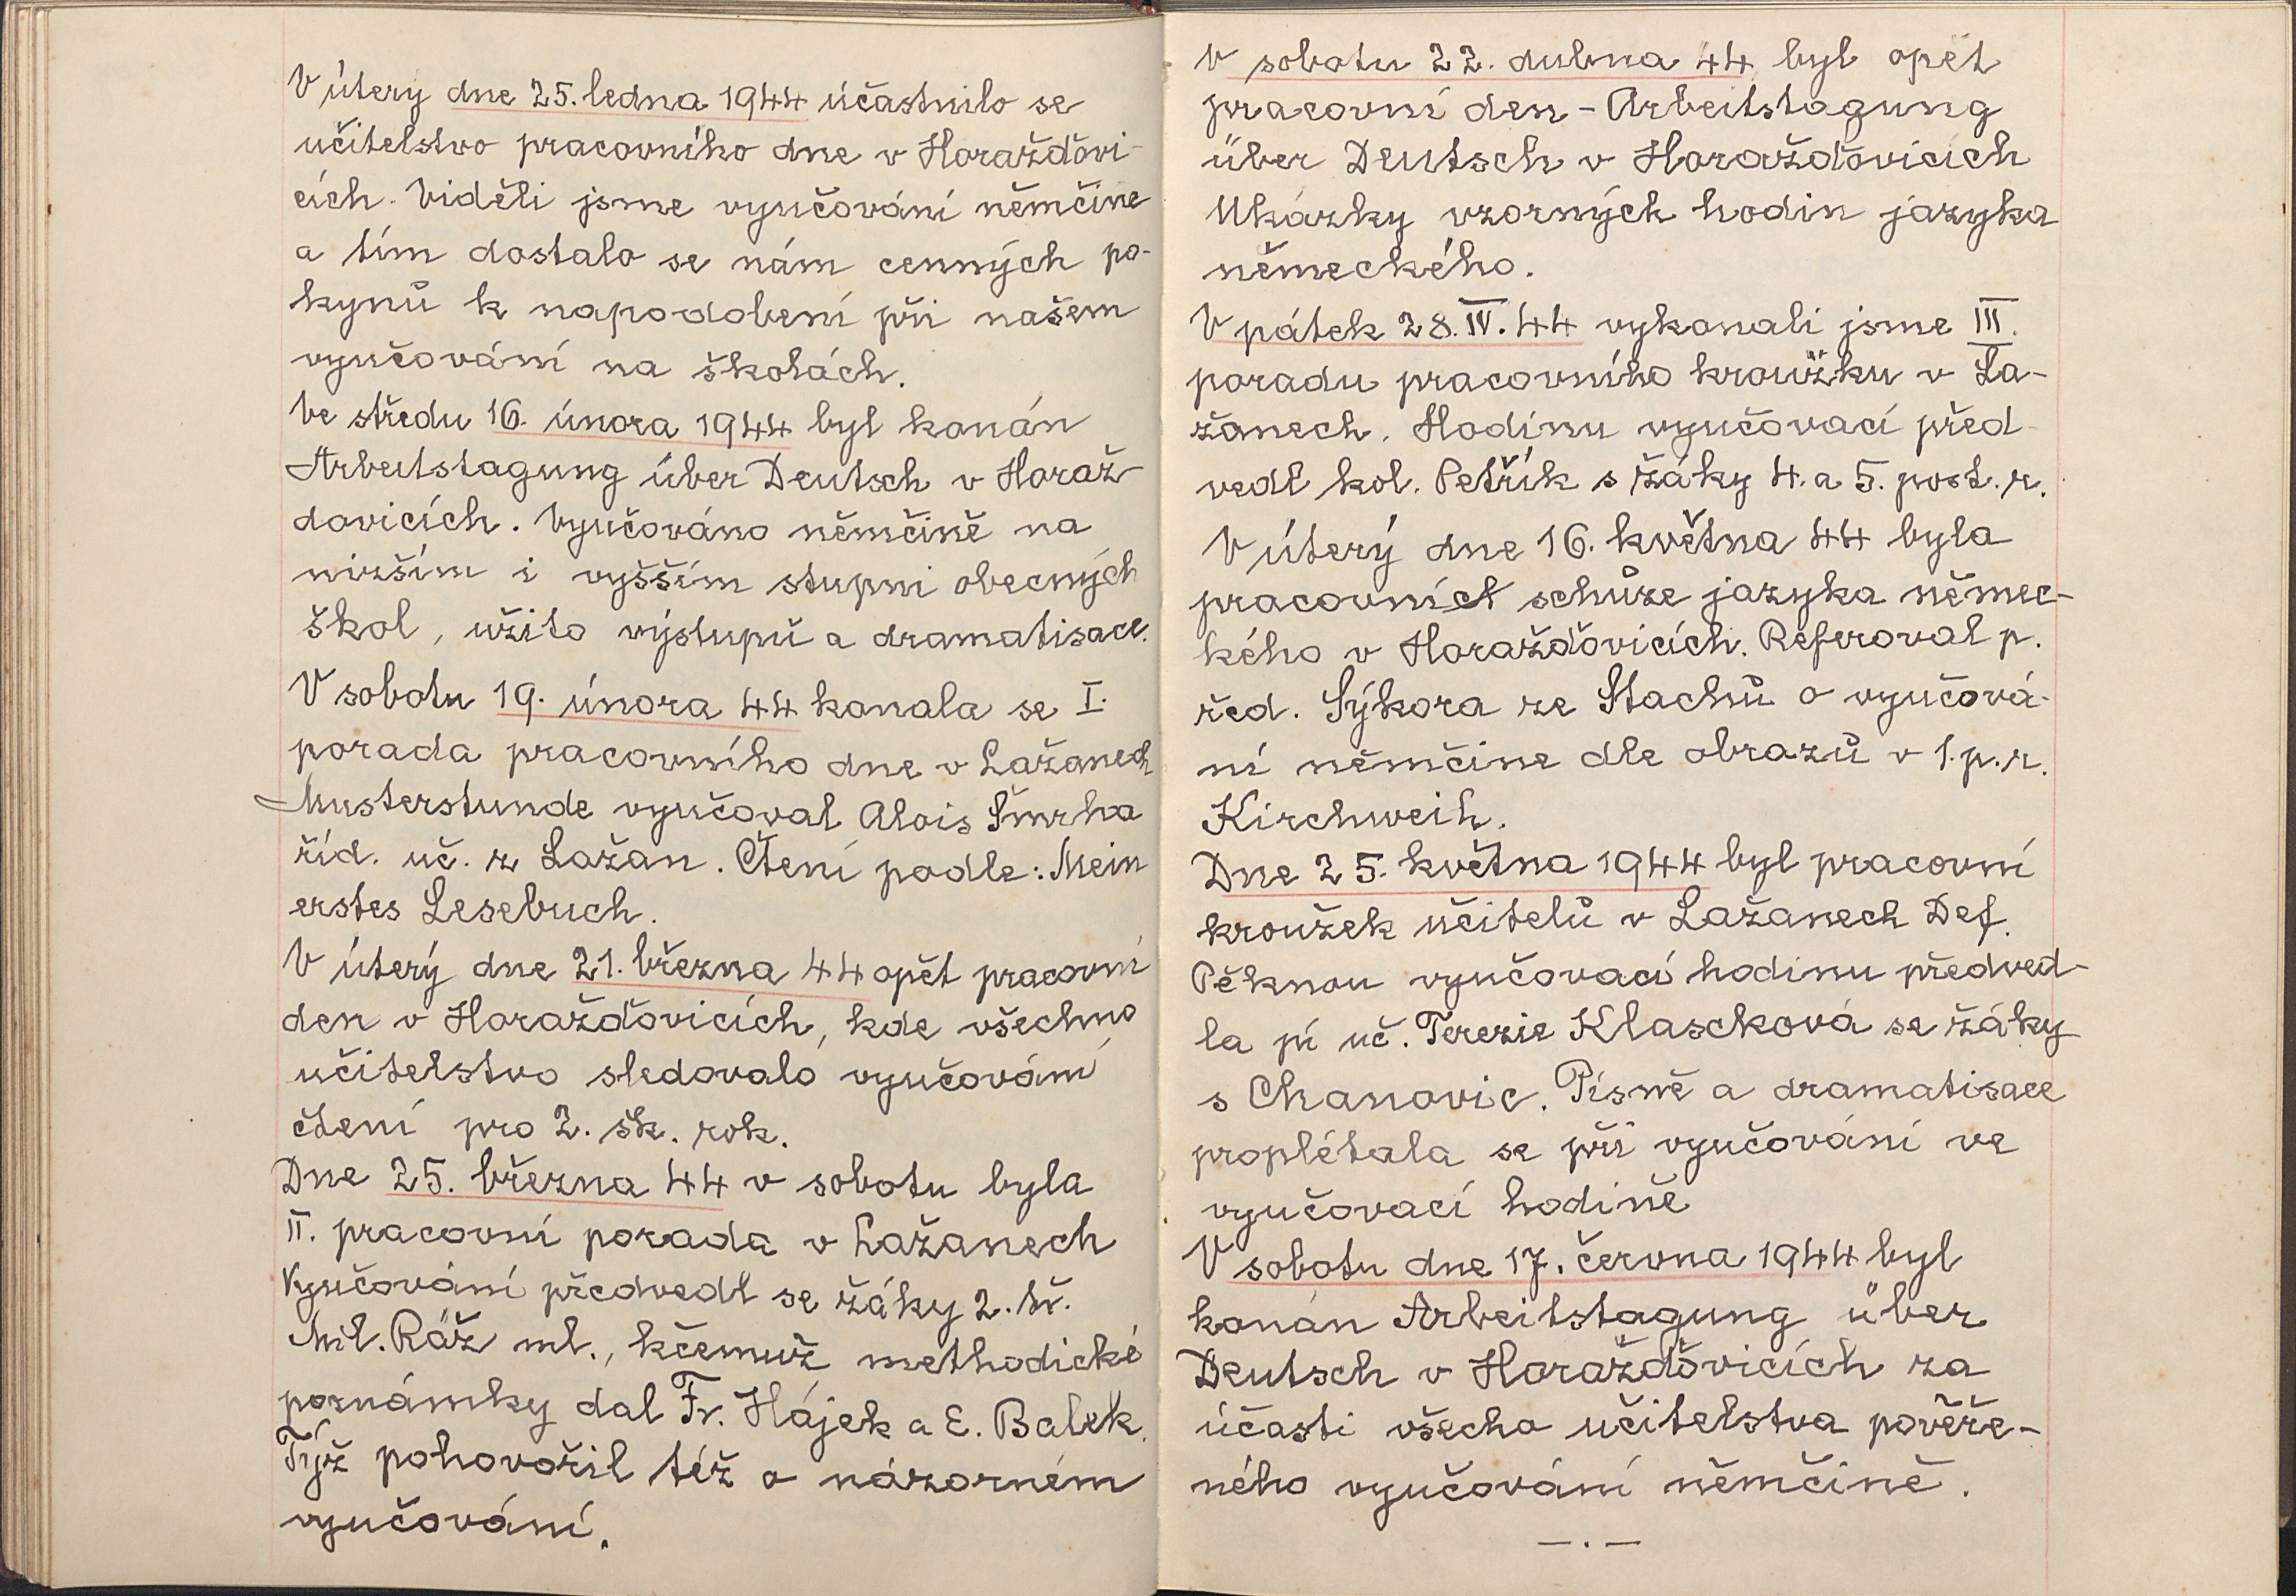 V útery dne 25. ledna 1944 účastnilo se
učitelstvo pracovního dne v Horažďovi-
cích. Viděli jsme vyučování němčine
a tím dostalo se nám cenných po-
kynů k napodobení při našem
vyučování na školách.
Ve středu 16. února 1944 byl konán
Arbeitstagung über Deutsch v Horaž-
dovicích. Vyučováno němčině na
nizším i vyšším stupni obecných
škol, užito výstupů a dramatisace.
V sobotu 19. února 44 konala se I.
porada pracovního dne v Lažanech
Musterstunde vyučoval Alois Šmrha
říd. uč. z Lažan. Čtení podle: Mein
erstes Lesebuch.
V úterý dne 21. března 44 opět pracovní
den v Horažďovicích, kde všechno
učitelstvo sledovalo vyučování
čtení pro 2. šk. rok.
Dne 25. března 44 v sobotu byla
II. pracovní porada v Lažanech
Vyučování předvedl se žáky 2. tř.
Mil. Ráž ml., kčemuž methodické
poznámky dal Fr. Hájek a E. Balek.
Týž pohovořil též o názorném
vyučování.
V sobotu 22. dubna 44 byl opět
pracovní den - Arbeitstagung
über Deutsch v Horažďovicích
Ukázky vzorných hodin jazyka
německého.
V pátek 28. IV. 44 vykonali jsme III.
poradu pracovního kroužku v La-
žanech. Hodinu vyučovací před-
vedl kol. Petřík s žáky 4. a 5. post. r.
V úterý dne 16. května 44 byla
pracovních schůze jazyka němec-
kého v Horažďovicích. Referoval p.
řed. Sýkora ze Stachů o vyučová-
ní němčine dle obrazů v 1. p. r.
Kirchweih.
Dne 25. května 1944 byl pracovní
kroužek učitelů v Lažanech Def.
Pěknou vyučovací hodinu předved-
la pí uč. Terezie Klascková se žáky
s Chanovic. Písně a dramatisace
proplétala se při vyučování ve
vyučovací hodině
V sobotu dne 17. června 1944 byl
konán Arbeitstagung über
Deutsch v Horažďovicích za
účasti všecho učitelstva pověře-
ného vyučování němčině.